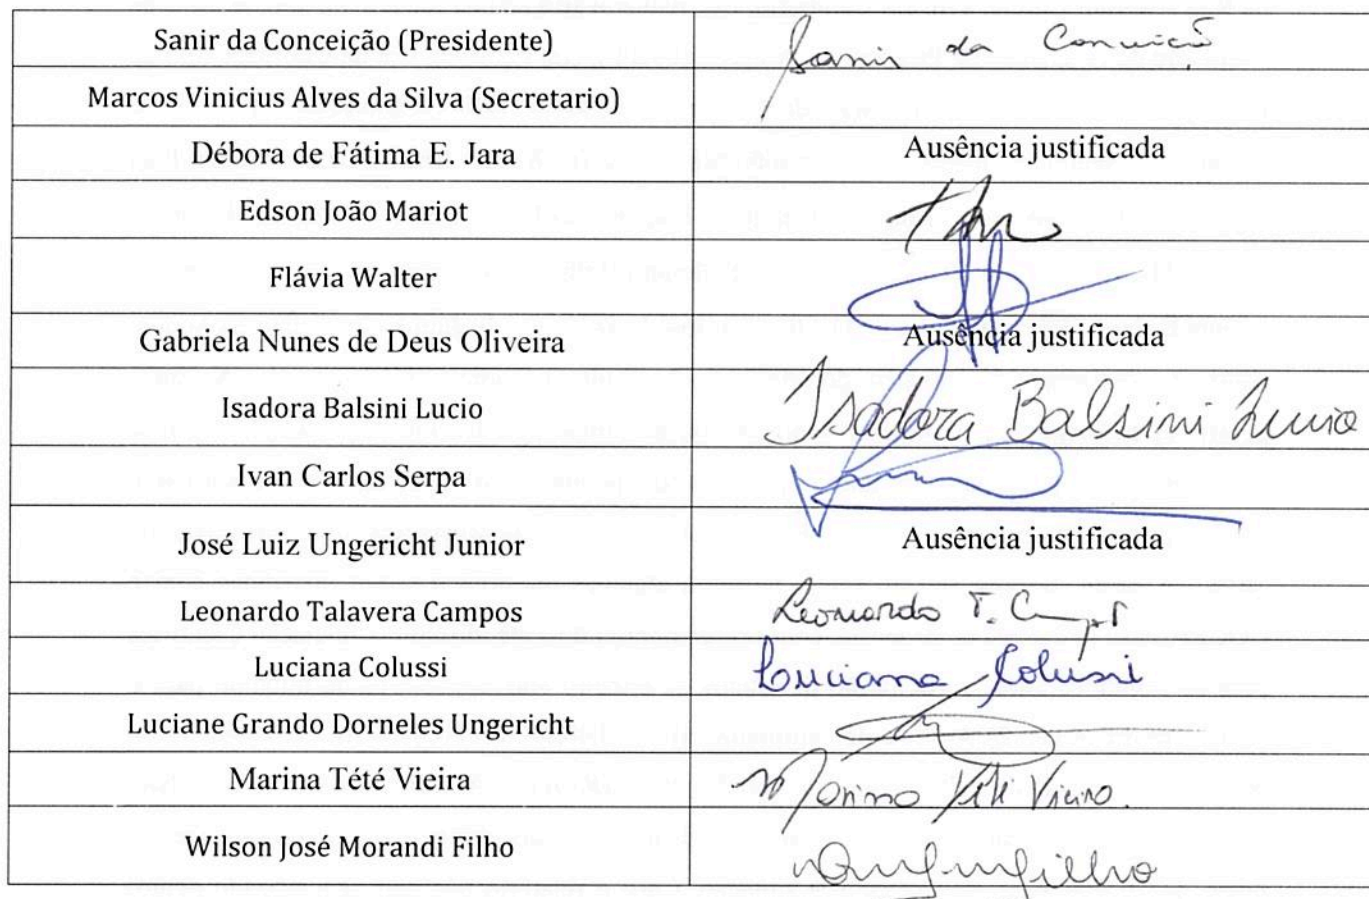 Sanir da Conceição (Presidente) Sanir da Conceiçã
Marcos Vinicius Alves da Silva (Secretario)
Débora de Fátima E. Jara Ausência justificada
Edson João Mariot
Flávia Walter
Gabriela Nunes de Deus Oliveira Ausência justificada
Isadora Balsini Lucio Isadora Balsini Lucio
Ivan Carlos Serpa
José Luiz Ungericht Junior Ausência justificada
Leonardo Talavera Campos Leonardo T. Campos
Luciana Colussi Luciana Colussi
Luciane Grando Dorneles Ungericht
Marina Tété Vieira Marina Tété Vieira.
Wilson José Morandi Filho